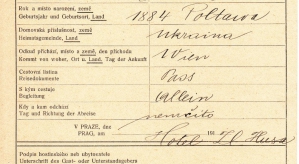 Rok a místo narození, země
Geburtsjahr und Geburtsort, Land
1884 Poltawa
Domovská příslušnost, země
Heimatsgemeinde, Land
Ukraina
Odkud příchází, místo a země, den příchodu
Kommt von woher, Ort u. Land, Tag der Ankunft
Wien
Cestovní listina
Reisedokumente
Pass
S kým cestuje
Begleitung
allein
Kdy a kam odchází
Tag und Richtung der Abreise
neurčito
V PRAZE, dne
PRAG, am
Hotel Zl Husa
Podpis hostinského neb ubytovatele
Unterschrift des Gast- oder Unterstandsgebers